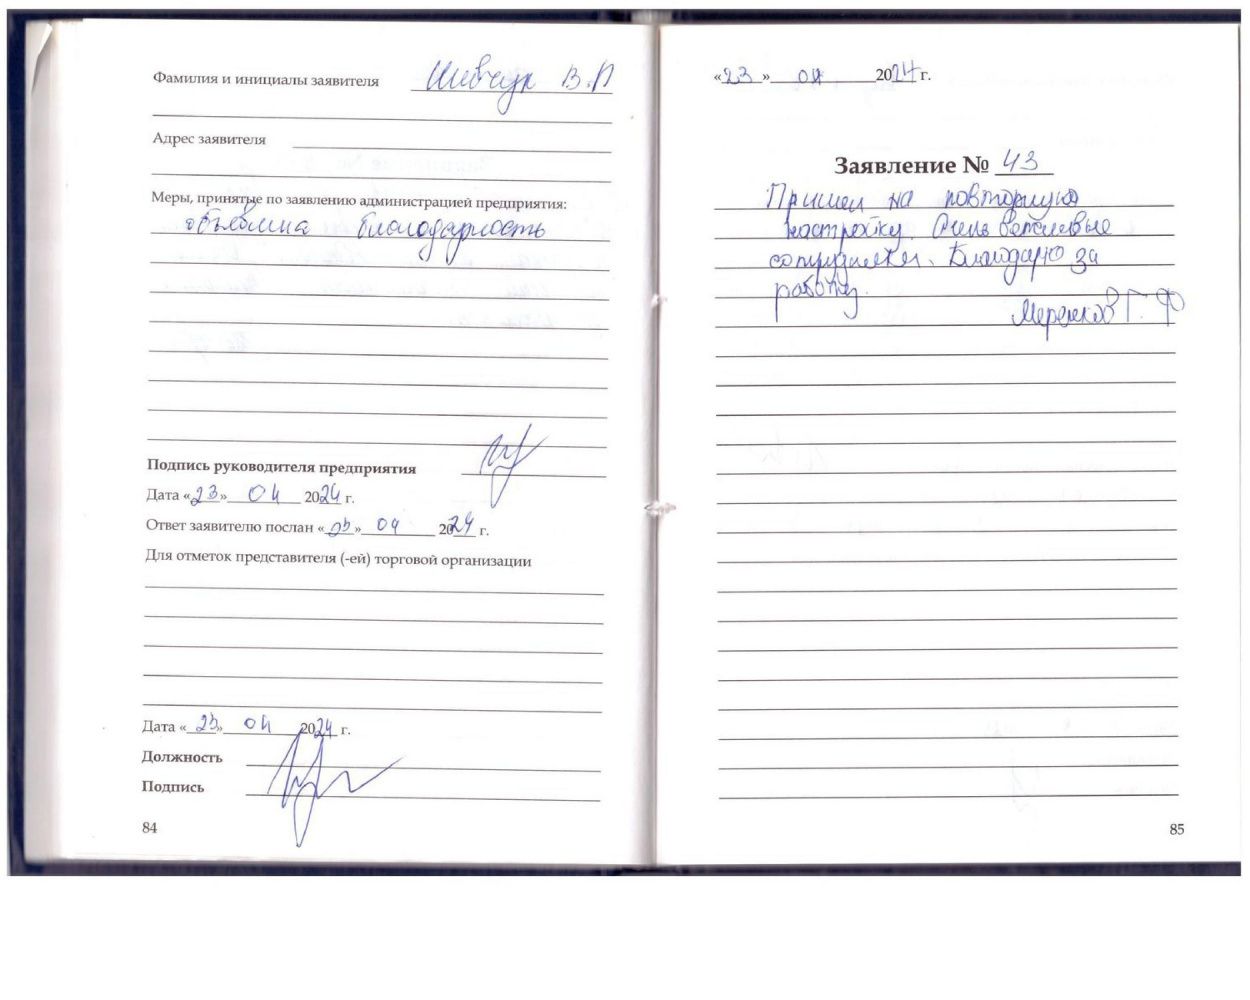 Фамилия и инициалы заявителя Шевчук В.П
Адрес заявителя
Меры, принятые по заявлению администрацией предприятия:
объявлина благодарность
Подпись руководителя предприятия
Дата «23» 04 2024 г.
Ответ заявителю послан «23» 04 2024 г.
Для отметок представителя (-ей) торговой организации
Дата «23» 04 2024 г.
Должность
Подпись
84
«23» 04 2024 г.
Заявление № 43
Пришел на повторную
настройку. Очень вежливые
сотрудники. Благодарю за
работу.
Меренков Г. Ф
85